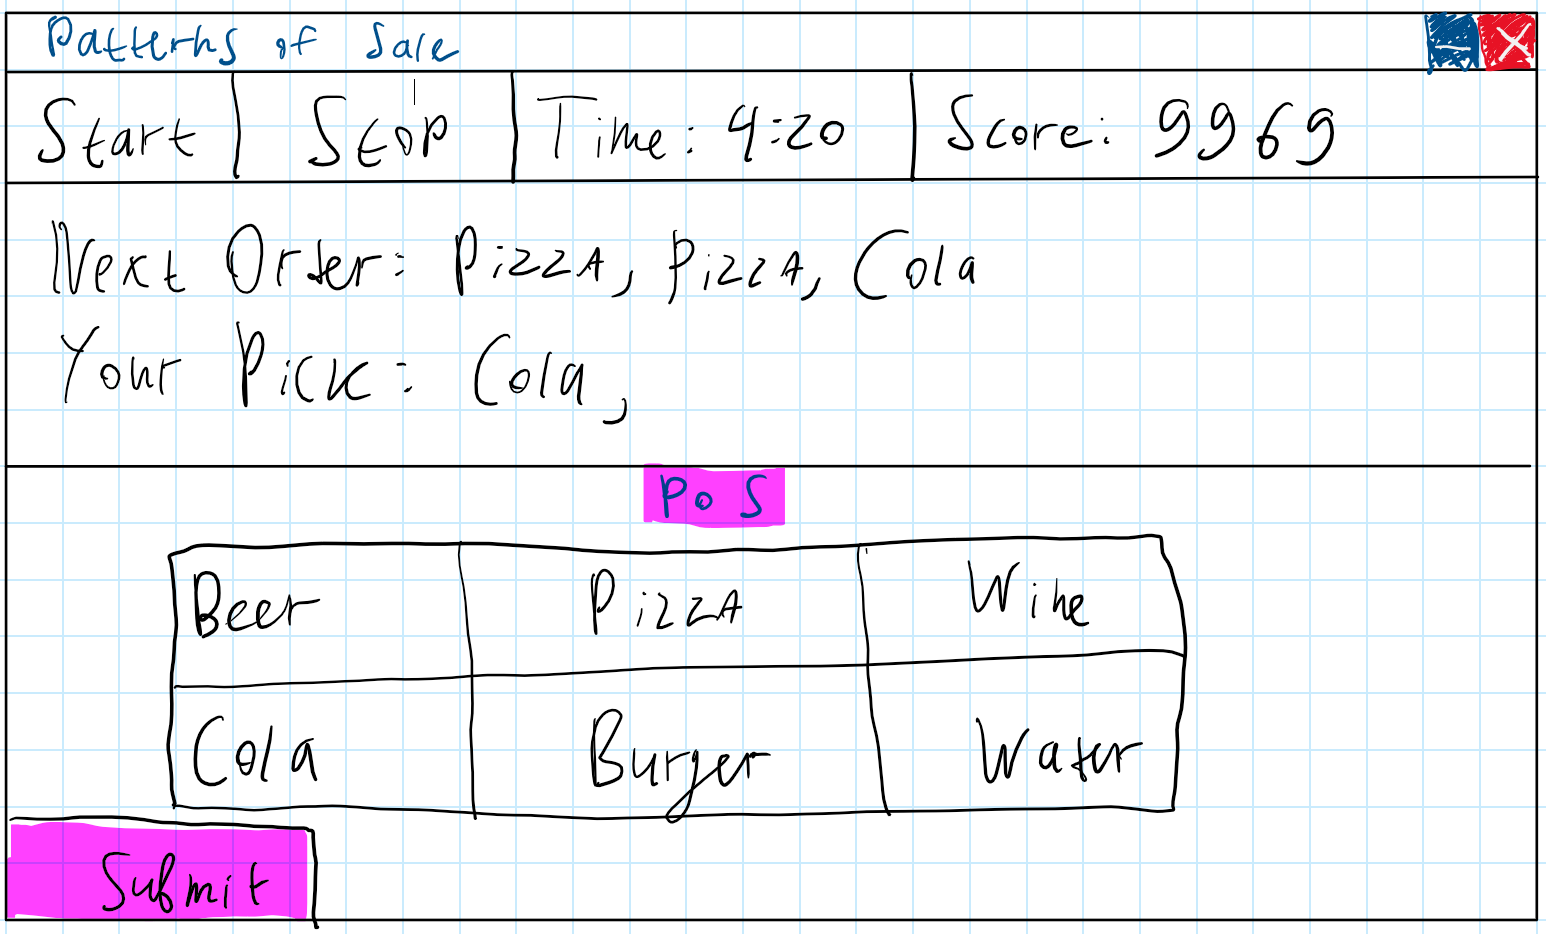 Patterns of Sale
Start Stop Time: 4:20 Score: 9969
Next Order: PizzA, PizzA, Cola
Your Pick: Cola,
PoS
Beer PizzA Wine
Cola Burger Water
Submit